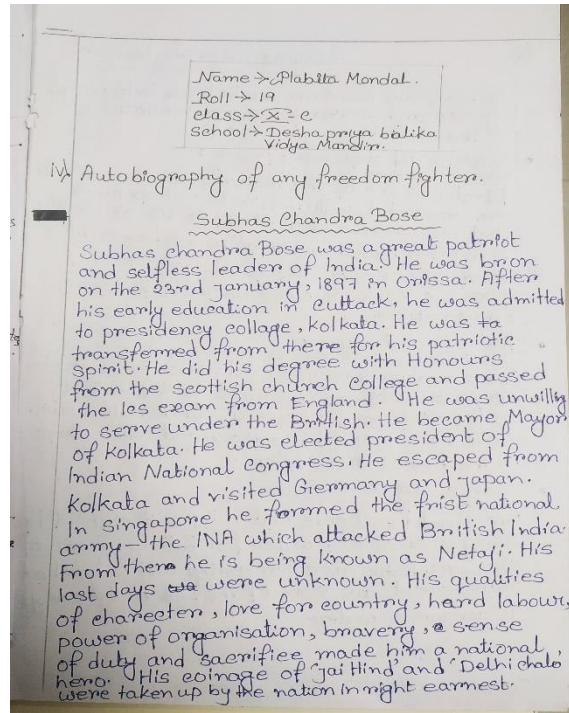 Name → Plabita Mondal.
Roll → 19
class → X - c
School → Deshapriya balika
Vidya Mandir.
iv) Autobiography of any freedom fighter.
Subhas Chandra Bose
Subhas chandra Bose was a great patriot
and selfless leader of India. He was bron
on the 23rd january, 1897 in Orissa. After
his early education in cuttack, he was admitted
to presidency collage, kolkata. He was ta
transferred from there for his patriotic
spirit. He did his degree with Honours
from the scottish church college and passed
the Ics exam from England. He was unwillig
to serve under the British. He became Mayor
of kolkata. He was elected president of
Indian National congress. He escaped from
kolkata and visited Germany and japan.
In singapore he formed the frist national
army - the INA which attacked British India.
From there he is being known as Netaji. His
last days were unknown. His qualities
of charecter, love for country, hard labour,
power of organisation, bravery, a sense
of duty and sacrifiee made him a national
hero. His coinage of 'jai Hind' and 'Delhi chalo'
were taken up by the nation in right earnest.